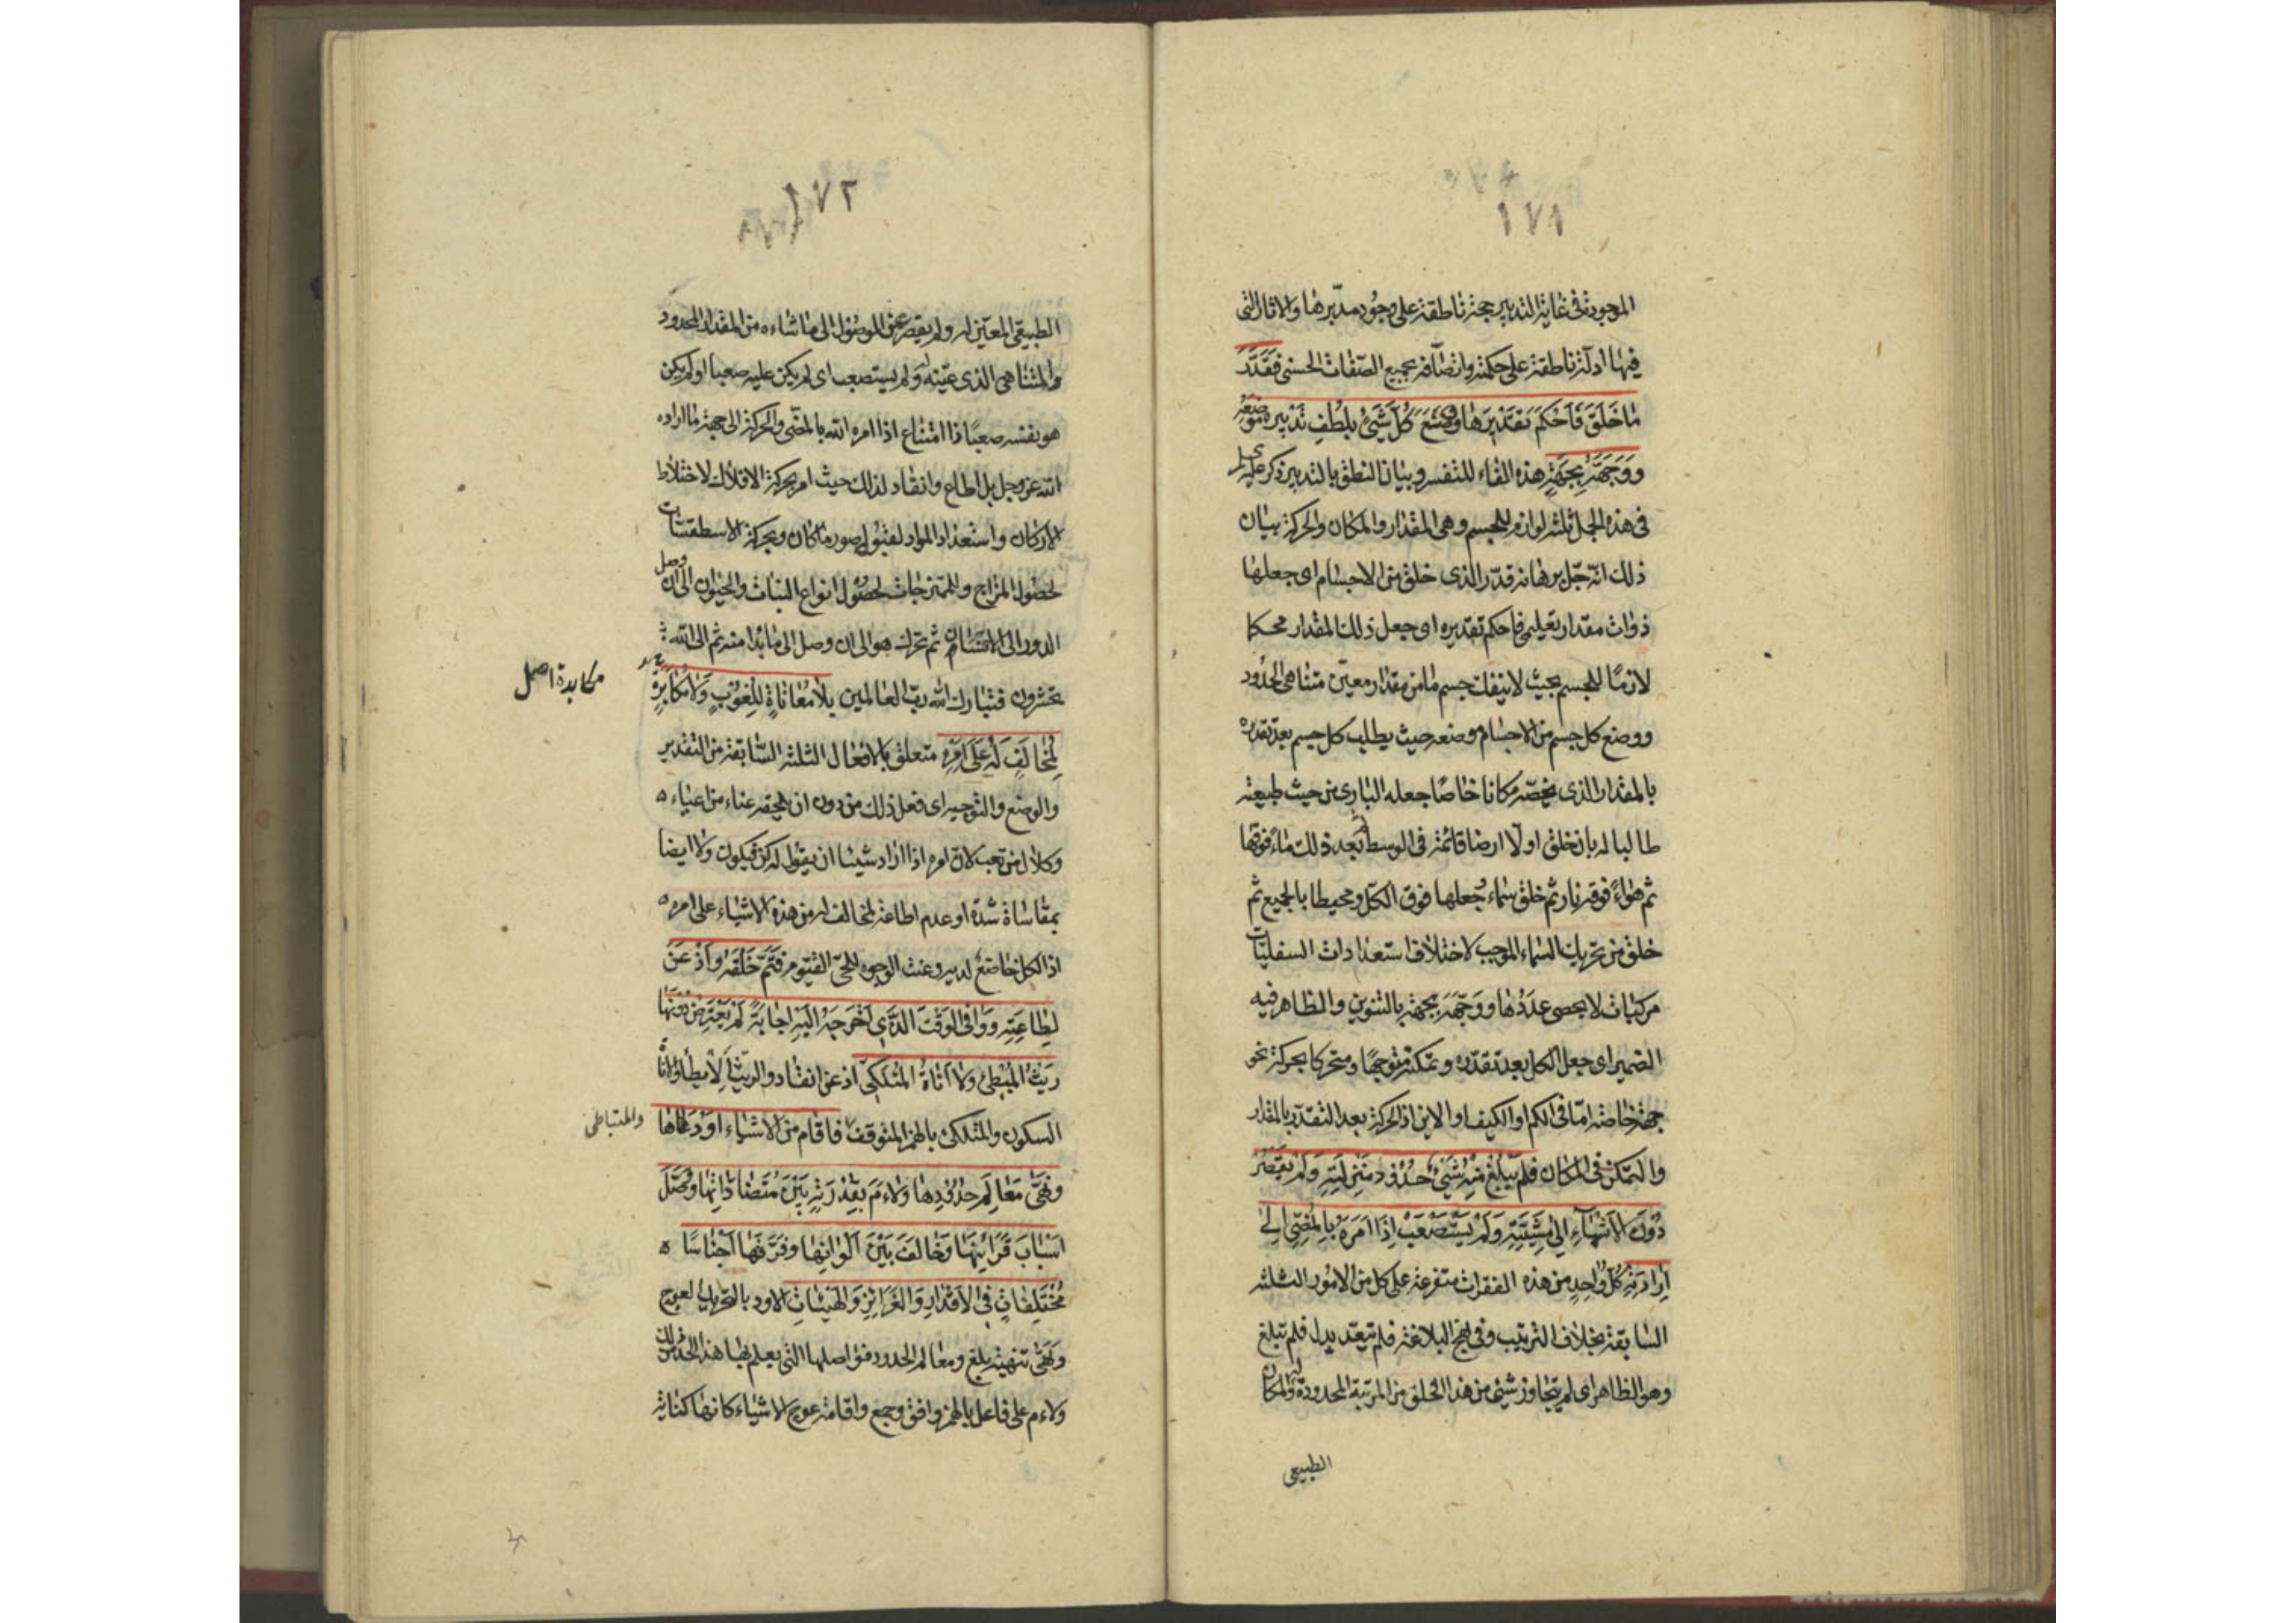 ١٧١
الموجودة فى غاية التدبير حجة ناطقة على وجود مدبّرها والاثار التى
فيها ادلّة ناطقة على حكمته واتصافه بجميع الصّفات الحسنى فَقَدَّرَ
مٰا خَلَقَ فَاَحْكَمَ تَقْدِيْرَهٰا وَوَضَعَ كُلَّ شَيْئٍ بِلُطْفِ تَدْبِيرِهِ مَوْضِعَهُ
وَوَجَّهَهُ بِجِهَةٍ هذه الفاء للتفسير وبيان النطق بالتدبير ذكر
فى هذه الجمل ثلثه لوازم للجسم وهى المقدار والمكان والحركة بيان
ذلك انّه جّل برهانه قدّر الذى خلق من الاجسام اى جعلها
ذوات مقدار تعليمى فاحكم تقديره اى جعل ذلك المقدار محكما
لازمًا للجسم بحيث لا ينفك جسم ما من مقدار معيّن متناهى الحدود
ووضع كل جسم من الاجسام موضعه حيث يطلب كل جسم بعد تقدره
بالمقدار الذى يخصّه مكانا خاصّا جعله البارى من حيث طبيعته
طالبا له بان خلق اولًا ارضا قائمة فى الوسط ثم بعد ذلك ماء فوقها
ثم هواءً فوقه نار ثم خلق سماء وجعلها فوق الكلّ ومحيطا بالجميع ثم
خلق من تحريك السماء الموجب لاختلاف استعدادات السفليّات
مركبات لا يحصى عددها ووجّهه بجهة بالتنوين والظاهر فيه
الضمير اى جعل الكل بعد تقدره وتمكنه متوجهًا ومتحركا بحركة نحو
جهة خاصّه امّا فى الكم او الكيف او الاين اذ الحركة بعد التقدّر بالمقدار
والتمكن فى المكان فلم يَبْلُغ مِنْهُ شَيْئٌ حُدُوْدَ مَنْزِلَتِهِ وَلَمْ يَقْصُرْ
دُوْنَ الْاِنْتِهٰاءِ اِلٰى مَشِيَّتِهِ وَلَمْ يَسْتَصْعِبْ اِذَا اَمَرَهُ بِالْمُضِىِّ اِلٰى
اِرَادَتِهِ كُلّ وٰاحِدٍ من هذه الفقرات متفرعة على كل من الامور الثلثه
السابقة بخلاف الترتيب وفى نهج البلاغة فلم يتعدّ بدل فلم يبلغ
وهو الظاهر اى لم يتجاوز شئ من هذا الخلق من المرتبة المحدودة له والمكان
الطبيعى
١٧٢
الطبيعى المعيّن له ولم يقصر عن الوصول الى ما شاءه من المقدار المحدود
والمتناهى الذى عيّنه له ولم يستصعب اى لم يكن عليه صعبا او لم يكن
هو بنفسه صعبًا ذا امتناع اذا امره الله بالمضىّ والحركة الى جهة ما اراده
الله عز وجل بل اطاع وانقاد لذلك حيث امر بحركة الافلاك لاختلاط
الاركان واستعداد المواد لقبول صور ما كان وبحركة الاسطقسّات
لحصول المزاج والممتزجات لحصول انواع النبات والحيوان الى ان وصل
الدور الى الانسان ثم تحرك هو الى ان وصل الى ما بدا منه ثم الى الله
تحشرون فتبارك الله ربّ العالمين بِلاٰ مُعٰانٰاةٍ لِلُغُوْبٍ وَلاٰ مُكٰابَرَةٍ
مكابدة اصل
لِمُخٰالِفٍ لَهُ عَلٰى اَمْرِهِ متعلق بالافعال الثلثه السّابقة من التقدير
والوضع والتوجيه اى فعل ذلك من دون ان يلحقه عناء من اعياء
وكلال من تعب لان امره اذا اراد شيئا ان يقول له كن فيكون ولا ايضا
بمقاساة شدّة او عدم اطاعة لمخالف له من هذه الاشياء على امره
اذ الكل خاضع لديه وعنت الوجوه للحىّ القيّوم فَتَمَّ خَلْقُهُ وَاَذْعَنَ
لِطٰاعَتِهِ وَوٰافَى الْوَقْتَ الَّذِى اَخْرَجَهُ اِلَيْهِ اِجٰابَةً لَمْ يَعْتَرِضْ دُوْنَهٰا
رَيْثُ الْمُبْطِئِ وَلاٰ اَنٰاةُ الْمُتَلَكِّئِ اذعن انقاد والريث الابطاء والاناة
السكون والمتلكئ بالهمز المتوقف فاَقٰامَ مِنَ الْاَشْيٰاءِ اَوَدَهٰا
والمتباطى
وَنَهّٰى مَعٰالِمَ حُدُوْدِهٰا وَلاٰءَمَ بِقُدْرَتِهِ بَيْنَ مُتَضٰادّٰاتِهٰا وَوَصَلَ
اَسْبٰابَ قَرٰائِنِهٰا وَخٰالَفَ بَيْنَ اَلْوٰانِهٰا وَفَرَّقَهٰا اَجْنٰاسًا
مُخْتَلِفٰاتٍ فِى الْاَقْدٰارِ وَالْغَرٰائِزِ وَالْهَيْئٰاتِ الاود بالتحريك العوج
ونهّى تنهية بلغ ومعالم الحدود فواصلها التى يعلم بها هذا الحد من ذلك
ولاءم على فاعل بالهمز وافق وجمع واقامة عوج الاشياء كانها كناية